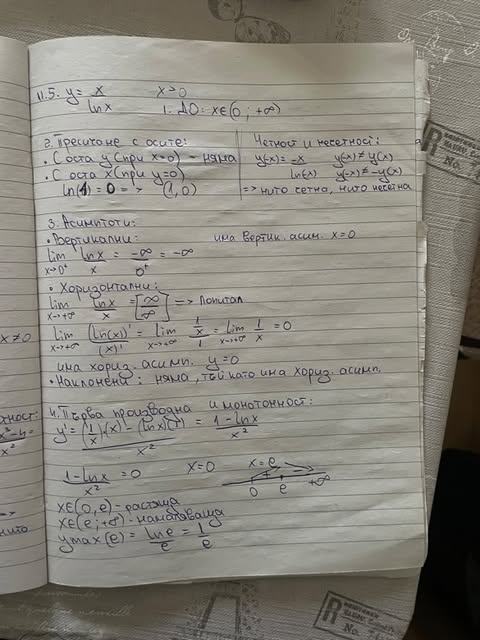 11.5. y = x / ln x   x > 0
1. ДО: x ∈ (0; +∞)
2. Пресичане с осите:
• С оста y (при x=0) - няма
• С оста x (при y=0)
ln(1) = 0 => (1, 0)
Четност и нечетност:
y(-x) = -x / ln(x)   y(x) ≠ y(x)
y(-x) ≠ -y(x)
=> нито четна, нито нечетна
3. Асимптоти:
• Вертикални:   има вертик. асим. x=0
lim x→0+ ln x / x = -∞ / 0+ = -∞
• Хоризонтални:
lim x→+∞ ln x / x = [∞/∞] => Лопитал
lim x→+∞ (ln(x))' / (x)' = lim x→+∞ (1/x) / 1 = lim x→+∞ 1/x = 0
има хориз. асимп. y=0
• Наклонени: няма, тъй като има хориз. асимп.
4. Първа производна и монотонност:
y' = (1/x)·(x) - (ln(x))·1 / x² = 1 - ln x / x²
1 - ln x / x² = 0   x=0   x=e
0   e   +∞
x∈(0, e) - растяща
x∈(e; +∞) - намаляваща
ymax(e) = ln e / e = 1/e
x ≠ 0
ност:
x² - 4 =
x²
=>
нито
R
No.